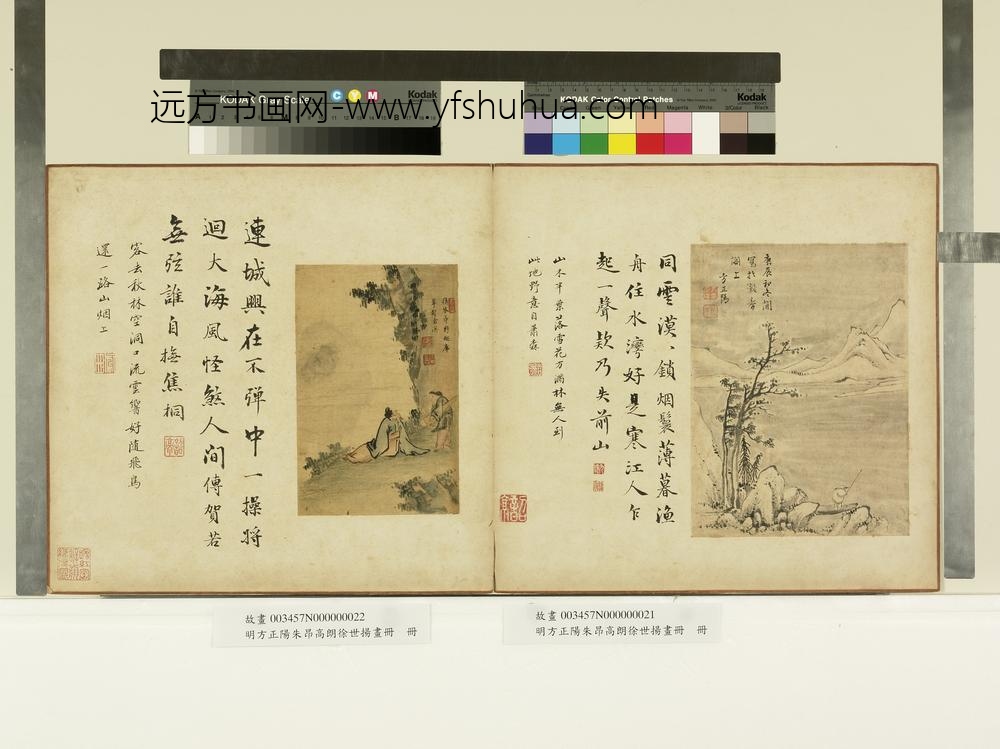 KODAK Gray Scale
C Y M
Kodak
KODAK Color Control Patches
Kodak
远方书画网-www.yfshuhua.com
庚辰初冬間
寫於
湖上
方正陽
同雲漠〻鎖烟鬟薄暮漁
舟住水灣好是寒江人乍
起一聲欸乃失前山
山木半葉落雪花方滿林無人到
此地野意自蕭森
連城興在不彈中一操將
迴大海風怪煞人間傳賀若
無弦誰自撫焦桐
客去秋林空洞口流雲響好隨飛鳥
還一路山烟上
故畫 003457N000000022
明方正陽朱昂高朗徐世揚畫冊 冊
故畫 003457N000000021
明方正陽朱昂高朗徐世揚畫冊 冊